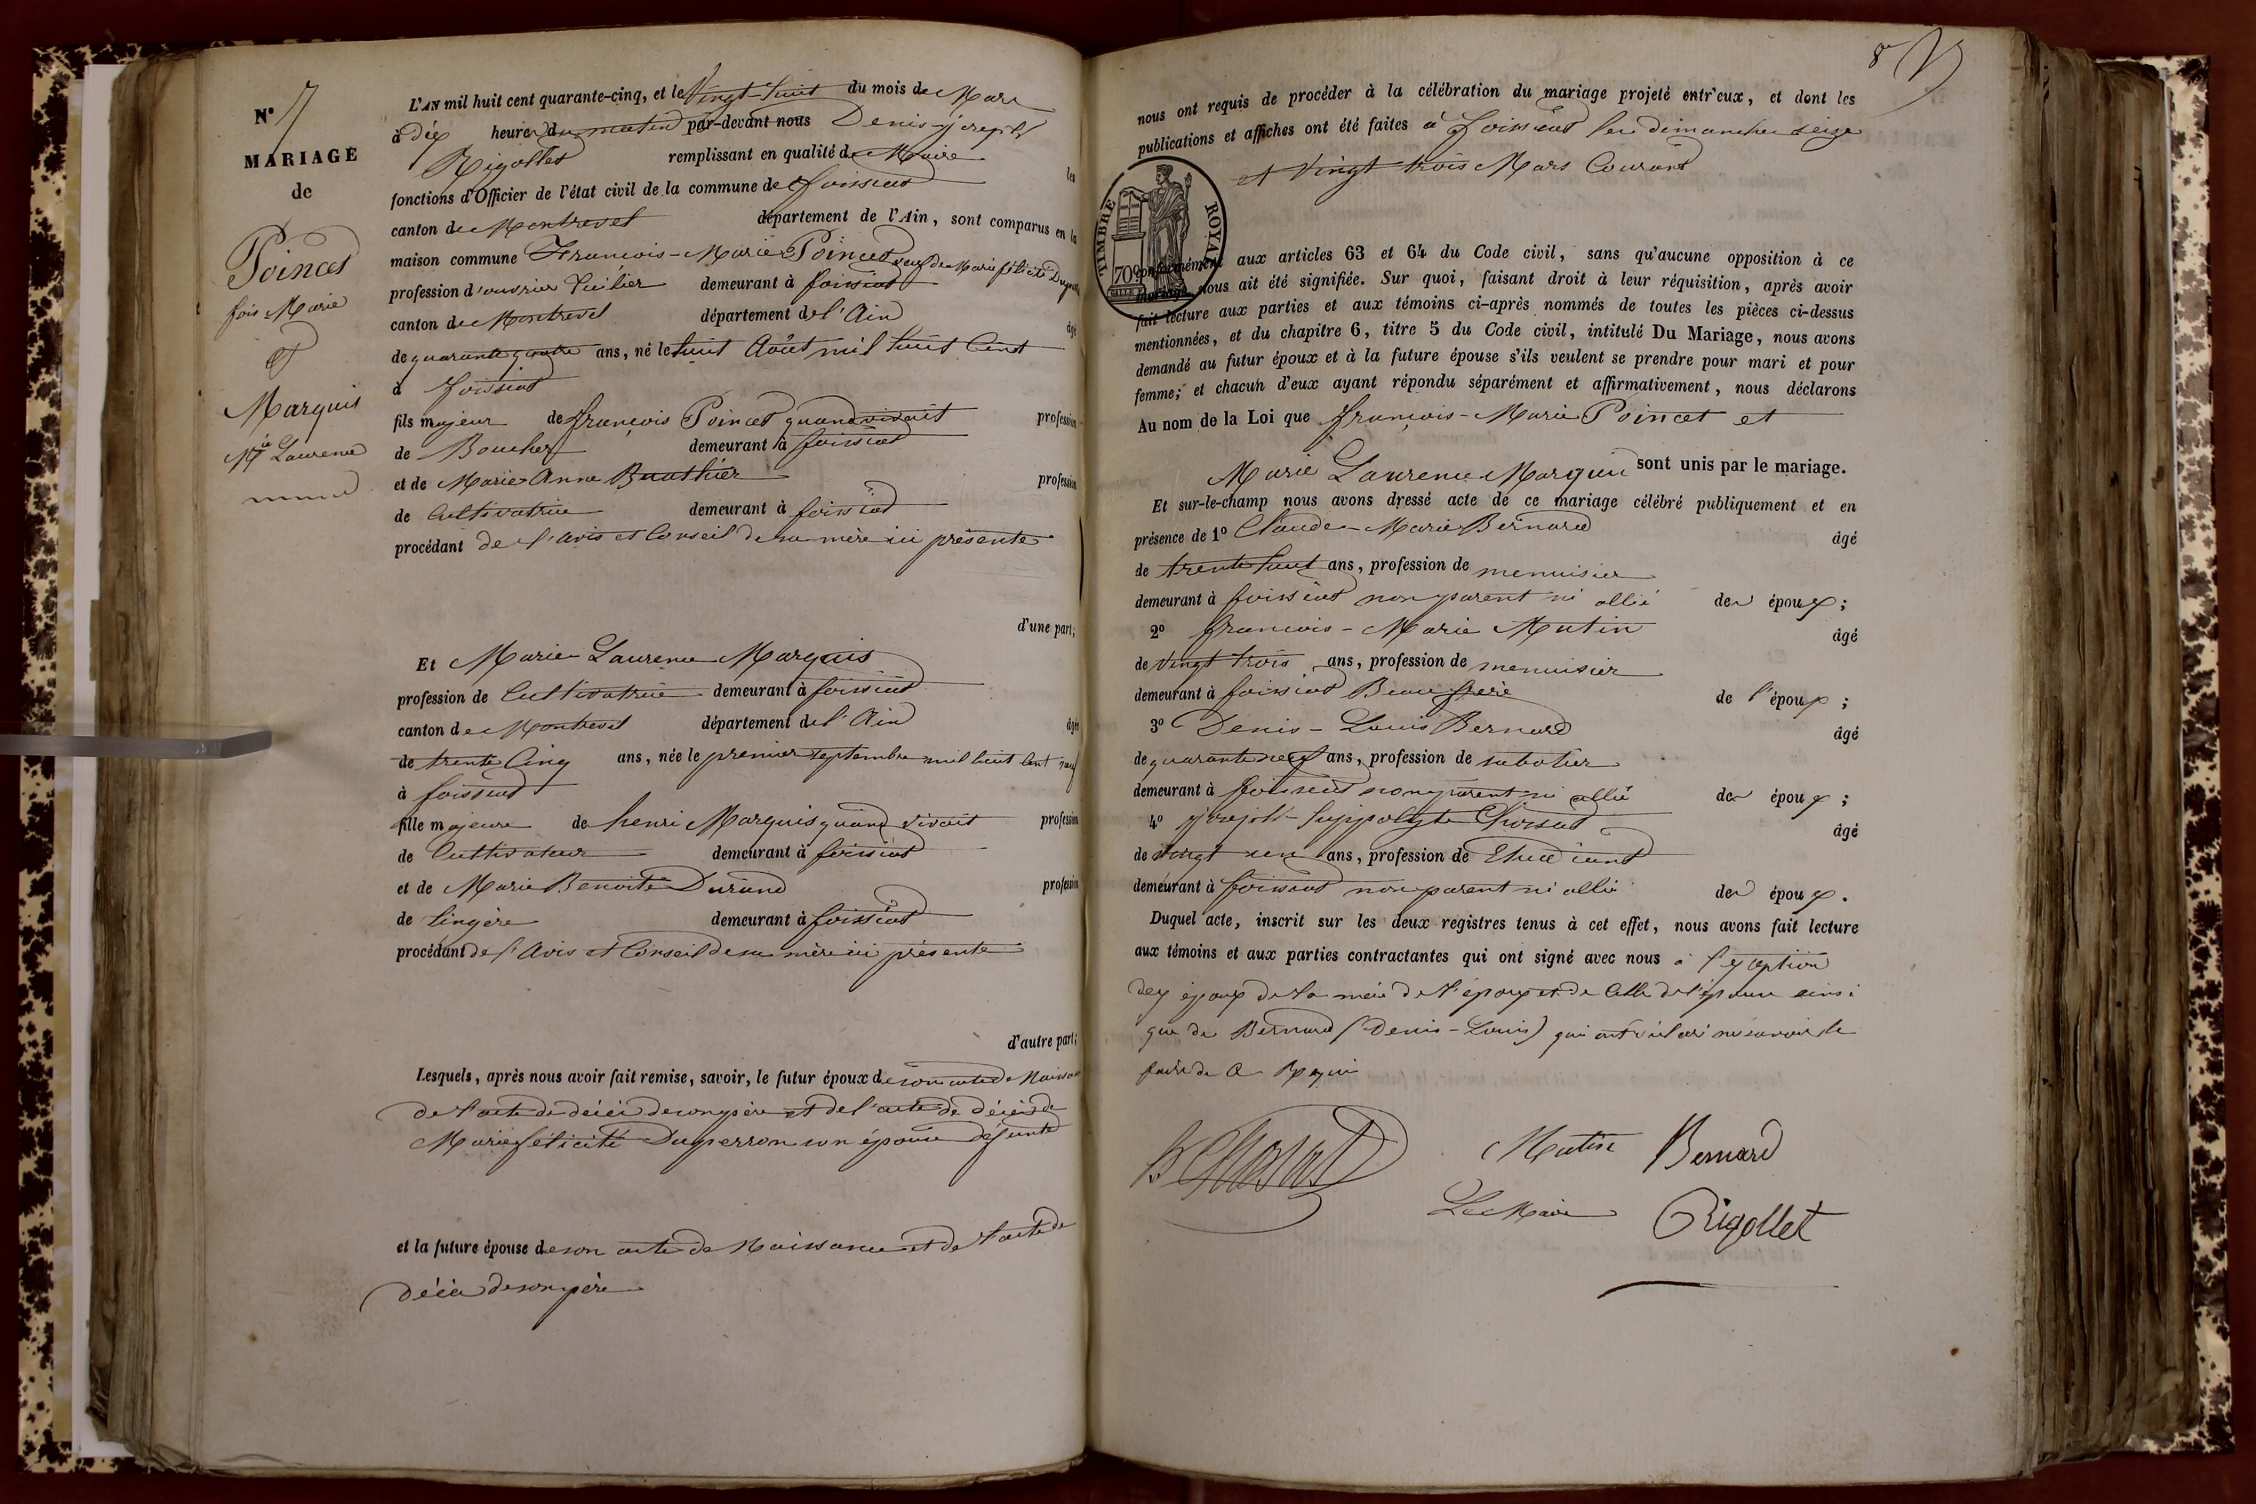 N° 7
MARIAGE
de
Poincet
fois Marie
et
Marquis
Mie Laurence
L'AN mil huit cent quarante-cinq, et le Vingt huit du mois de Mars
à dix heures du matin par-devant nous Denis Joseph
Rigollet remplissant en qualité de Maire les
fonctions d'Officier de l'état civil de la commune de foissiat
canton de Montrevel département de l'Ain, sont comparus en la
maison commune François-Marie Poincet veuf de Marie félicité
profession d'ouvrier tuilier demeurant à foissiat
canton de Montrevel département de l'Ain âgé
de quarante quatre ans, né le huit Août mil huit Cent
à foissiat
fils majeur de françois Poincet quand vivait profession
de Boucher demeurant à foissiat
et de Marie Anne Buathier profession
de Cultivatrice demeurant à foissiat
procédant de l'avis et Conseil de sa mère ici présente
d'une part;
Et Marie Laurence Marquis
profession de Cultivatrice demeurant à foissiat
canton de Montrevel département de l'Ain âgée
de trente Cinq ans, née le premier septembre mil huit Cent neuf
à foissiat
fille majeure de henri Marquis quand vivait profession
de Cultivateur demeurant à foissiat
et de Marie Benoite Durand profession
de lingère demeurant à foissiat
procédant de l'Avis et Conseil de sa mère ici présente
d'autre part;
Lesquels, après nous avoir fait remise, savoir, le futur époux de son acte de Naissance
de l'acte de décès de son père et de l'acte de décès de
Marie félicité Duperron son épouse défunte
et la future épouse de son acte de Naissance et de l'acte de
décès de son père
8e
nous ont requis de procéder à la célébration du mariage projeté entr'eux, et dont les
publications et affiches ont été faites à foissiat les dimanches seize
et Vingt trois Mars Courant
TIMBRE ROYAL
70c
conformément aux articles 63 et 64 du Code civil, sans qu'aucune opposition à ce
mariage nous ait été signifiée. Sur quoi, faisant droit à leur réquisition, après avoir
fait lecture aux parties et aux témoins ci-après nommés de toutes les pièces ci-dessus
mentionnées, et du chapitre 6, titre 5 du Code civil, intitulé Du Mariage, nous avons
demandé au futur époux et à la future épouse s'ils veulent se prendre pour mari et pour
femme; et chacun d'eux ayant répondu séparément et affirmativement, nous déclarons
Au nom de la Loi que françois-Marie Poincet et
Marie Laurence Marquis sont unis par le mariage.
Et sur-le-champ nous avons dressé acte de ce mariage célébré publiquement et en
présence de 1° Claude-Marie Bernard âgé
de trente huit ans, profession de menuisier
demeurant à foissiat non parent ni allié des époux;
2° françois-Marie Mutin âgé
de vingt trois ans, profession de menuisier
demeurant à foissiat Beau frère de l'époux;
3° Denis-Louis Bernard âgé
de quarante neuf ans, profession de sabotier
demeurant à foissiat non parent ni allié des époux;
4° Joseph-hyppolyte Chossat âgé
de vingt un ans, profession de Etudiant
demeurant à foissiat non parent ni allié des époux.
Duquel acte, inscrit sur les deux registres tenus à cet effet, nous avons fait lecture
aux témoins et aux parties contractantes qui ont signé avec nous à l'exception
des époux de la mère de l'époux et de Celle de l'épouse ainsi
que de Bernard (Denis-Louis) qui ont déclaré ne savoir le
faire de Ce Requis
h Chossat
Mutin
Bernard
Le Maire
Rigollet